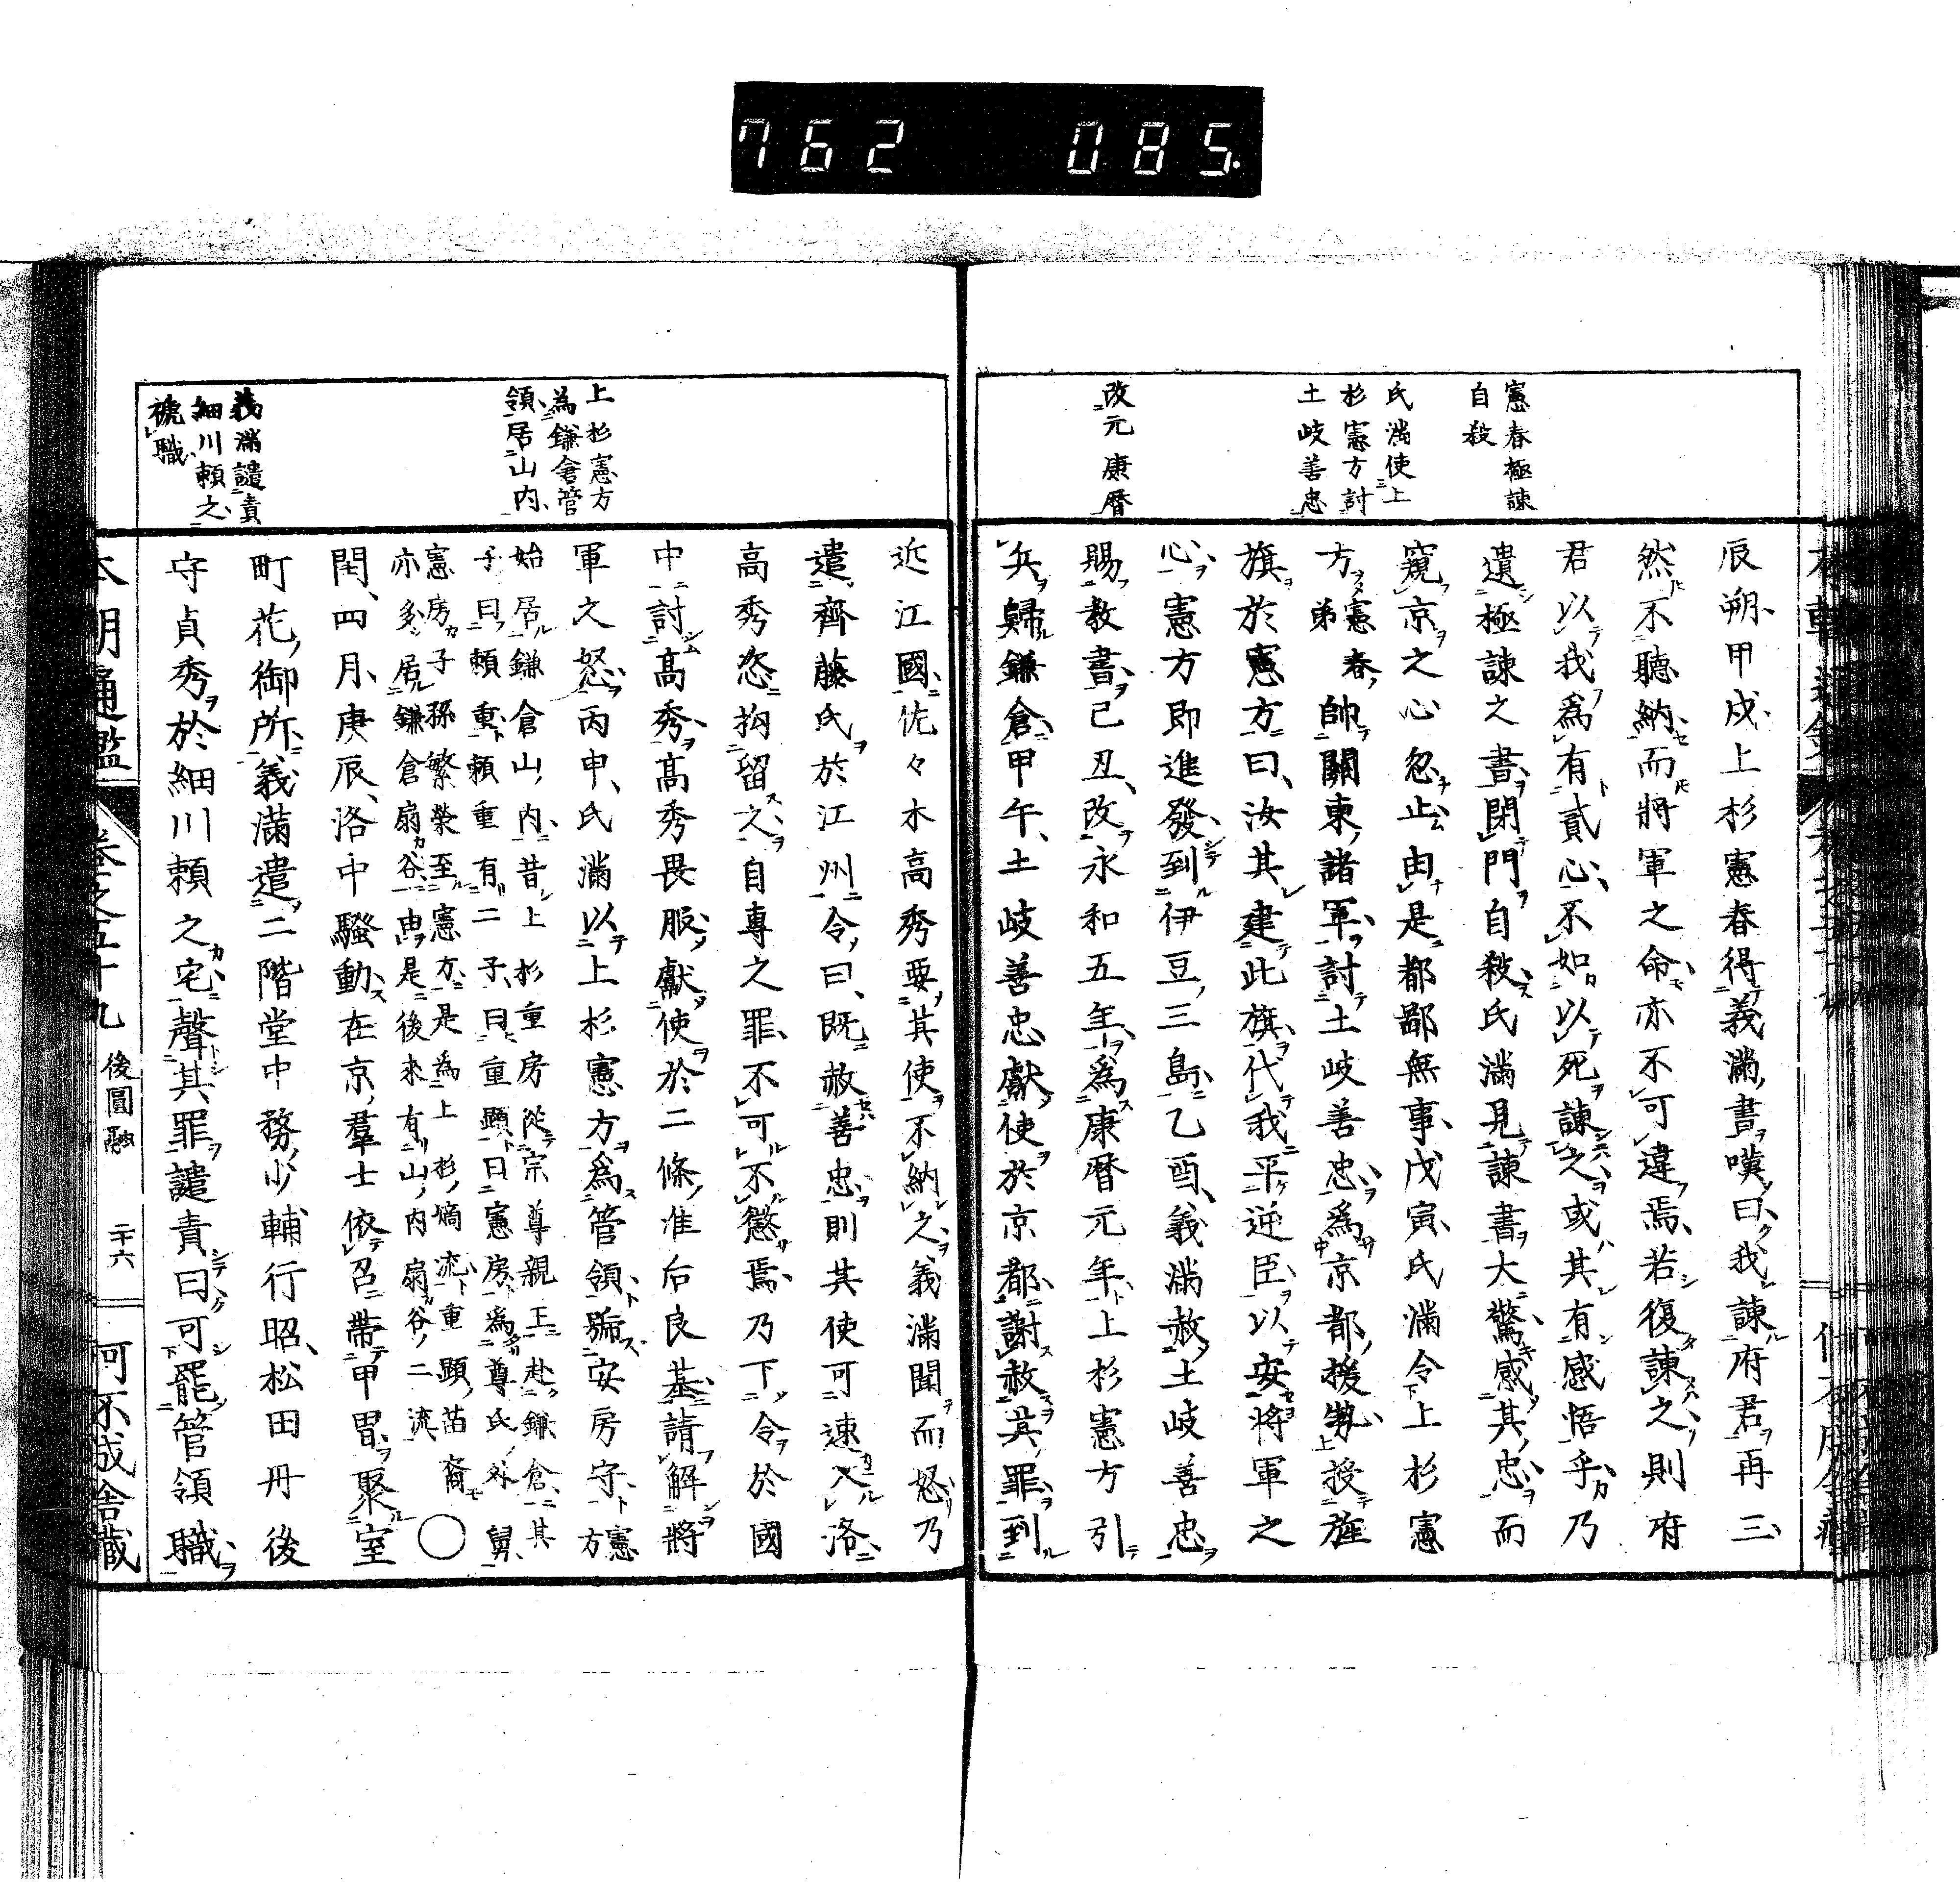 762 085.
憲春極諫
自殺
氏滿使上
杉憲方討
土岐善忠
改元康曆
辰朔甲戌上杉憲春得義滿書嘆曰我諫府君再三
然不聽納而將軍之命亦不可違焉若復諫之則府
君以我爲有貳心不如以死諫之或其有感悟乎乃
遺極諫之書閉門自殺氏滿見諫書大驚感其忠而
窺京之心忽止由是都鄙無事戊寅氏滿令上杉憲
方憲春弟帥關東諸軍討土岐善忠爲京都援勢授旌
旗於憲方曰汝其建此旗代我平逆臣以安將軍之
心憲方即進發到伊豆三島乙酉義滿赦土岐善忠
賜教書己丑改永和五年爲康曆元年上杉憲方引
兵歸鎌倉甲午土岐善忠獻使於京都謝赦其罪到
上杉憲方
為鎌倉管
領居山内
義滿譴責
細川頼之
褫職
近江國佐々木高秀要其使不納之義滿聞而怒乃
遣齊藤氏於江州令曰既赦善忠則其使可速入洛
高秀恣拘留之自專之罪不可不懲焉乃下令於國
中討高秀高秀畏服獻使於二條准后良基請解將
軍之怒丙申氏滿以上杉憲方爲管領號安房守憲方
始居鎌倉山内昔上杉重房從宗尊親王赴鎌倉其
子曰頼重頼重有二子曰重顯曰憲房爲尊氏外舅
憲房子孫繁榮至憲方是爲上杉嫡流重顯苗裔
亦多居鎌倉扇谷由是後來有山内扇谷二流○
閏四月庚辰洛中騷動在京羣士依召帶甲冑聚室
町花御所義滿遣二階堂中務少輔行昭松田丹後
守貞秀於細川頼之宅聲其罪譴責曰可罷管領職
本朝通鑑 卷之五十九 後圓融 二十六 何不成舍藏